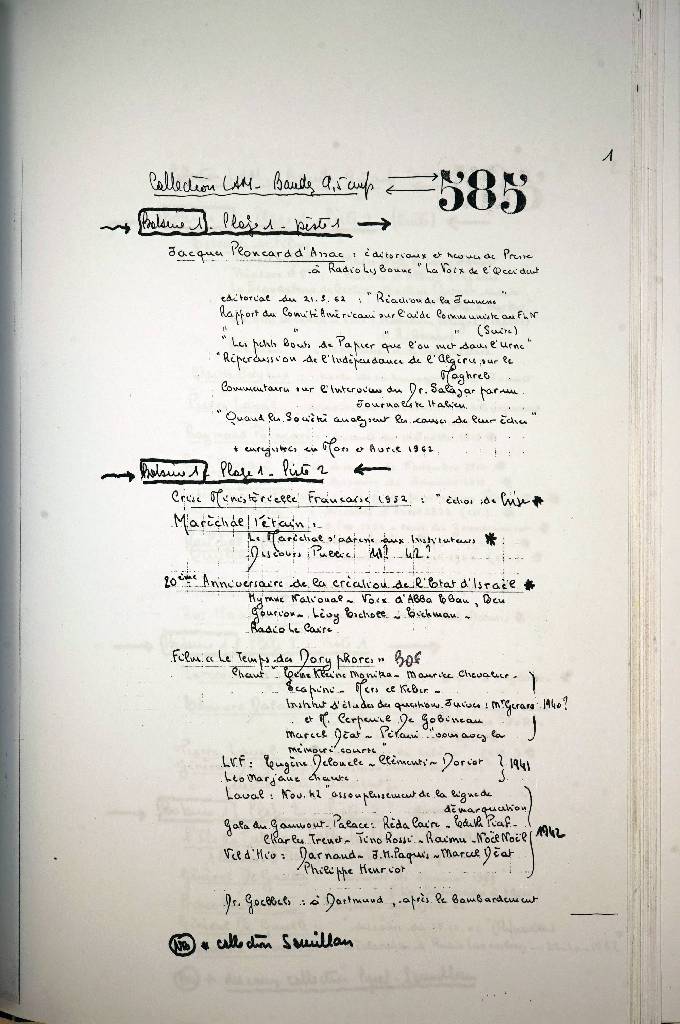 1
Collection LAM - Bandes 9,5 cm/s 585
Bobine 1 - Plage 1 - piste 1
Jacques Ploncard d'Assac : éditoriaux et revues de Presse
à Radio Lisbonne "La Voix de l'Occident
editorial du 21.3.62 : "Réaction de la Jeunesse"
Rapport du Comité Américain sur l'aide Communiste au FLN
" " " " (Suite)
"Les petits bouts de Papier que l'on met dans l'Urne"
"Répercussion de l'Indépendance de l'Algérie sur le
Maghreb
Commentaires sur l'Interview du Dr. Salazar par un
Journaliste Italien
"Quand les Sociétés analysent les causes de leur échec"
* enregistrés en Mars et Avril 1962
Bobine 1 - Plage 1 - Piste 2
Crise Ministérielle Française 1952 : "échos de Crise *
Maréchal Pétain :
Le Maréchal s'adresse aux Instituteurs *
Discours Public 41? 42?
20ème Anniversaire de la création de l'Etat d'Israël *
Hymne National - Voix d'Abba Eban, Ben
Gourion - Lévy Eschcol - Eichman -
Radio Le Caire
Film "Le Temps des Doryphores" BOF
Chant - Monika - Maurice Chevalier -
Scapini - Mers el Kebir -
Institut d'études des questions Juives : Mr Gerard 1940?
et M. De Gobineau
Marcel Déat - Pétain "vous avez la
mémoire courte"
LVF : Eugène Deloncle - Clémenti - Doriot 1941
Léo Marjane chante
Laval : Nov. 42 "assouplissement de la ligne de
démarcation
Gala du Gaumont-Palace : Réda Caire - Edith Piaf -
Charles Trenet - Tino Rossi - Raimu - Noël Noël 1942
Vel d'Hiv : Darnand - J.H. Paquis - Marcel Déat
Philippe Henriot
Dr. Goebbels : à Dortmund, après le bombardement
NB * collection Souillan